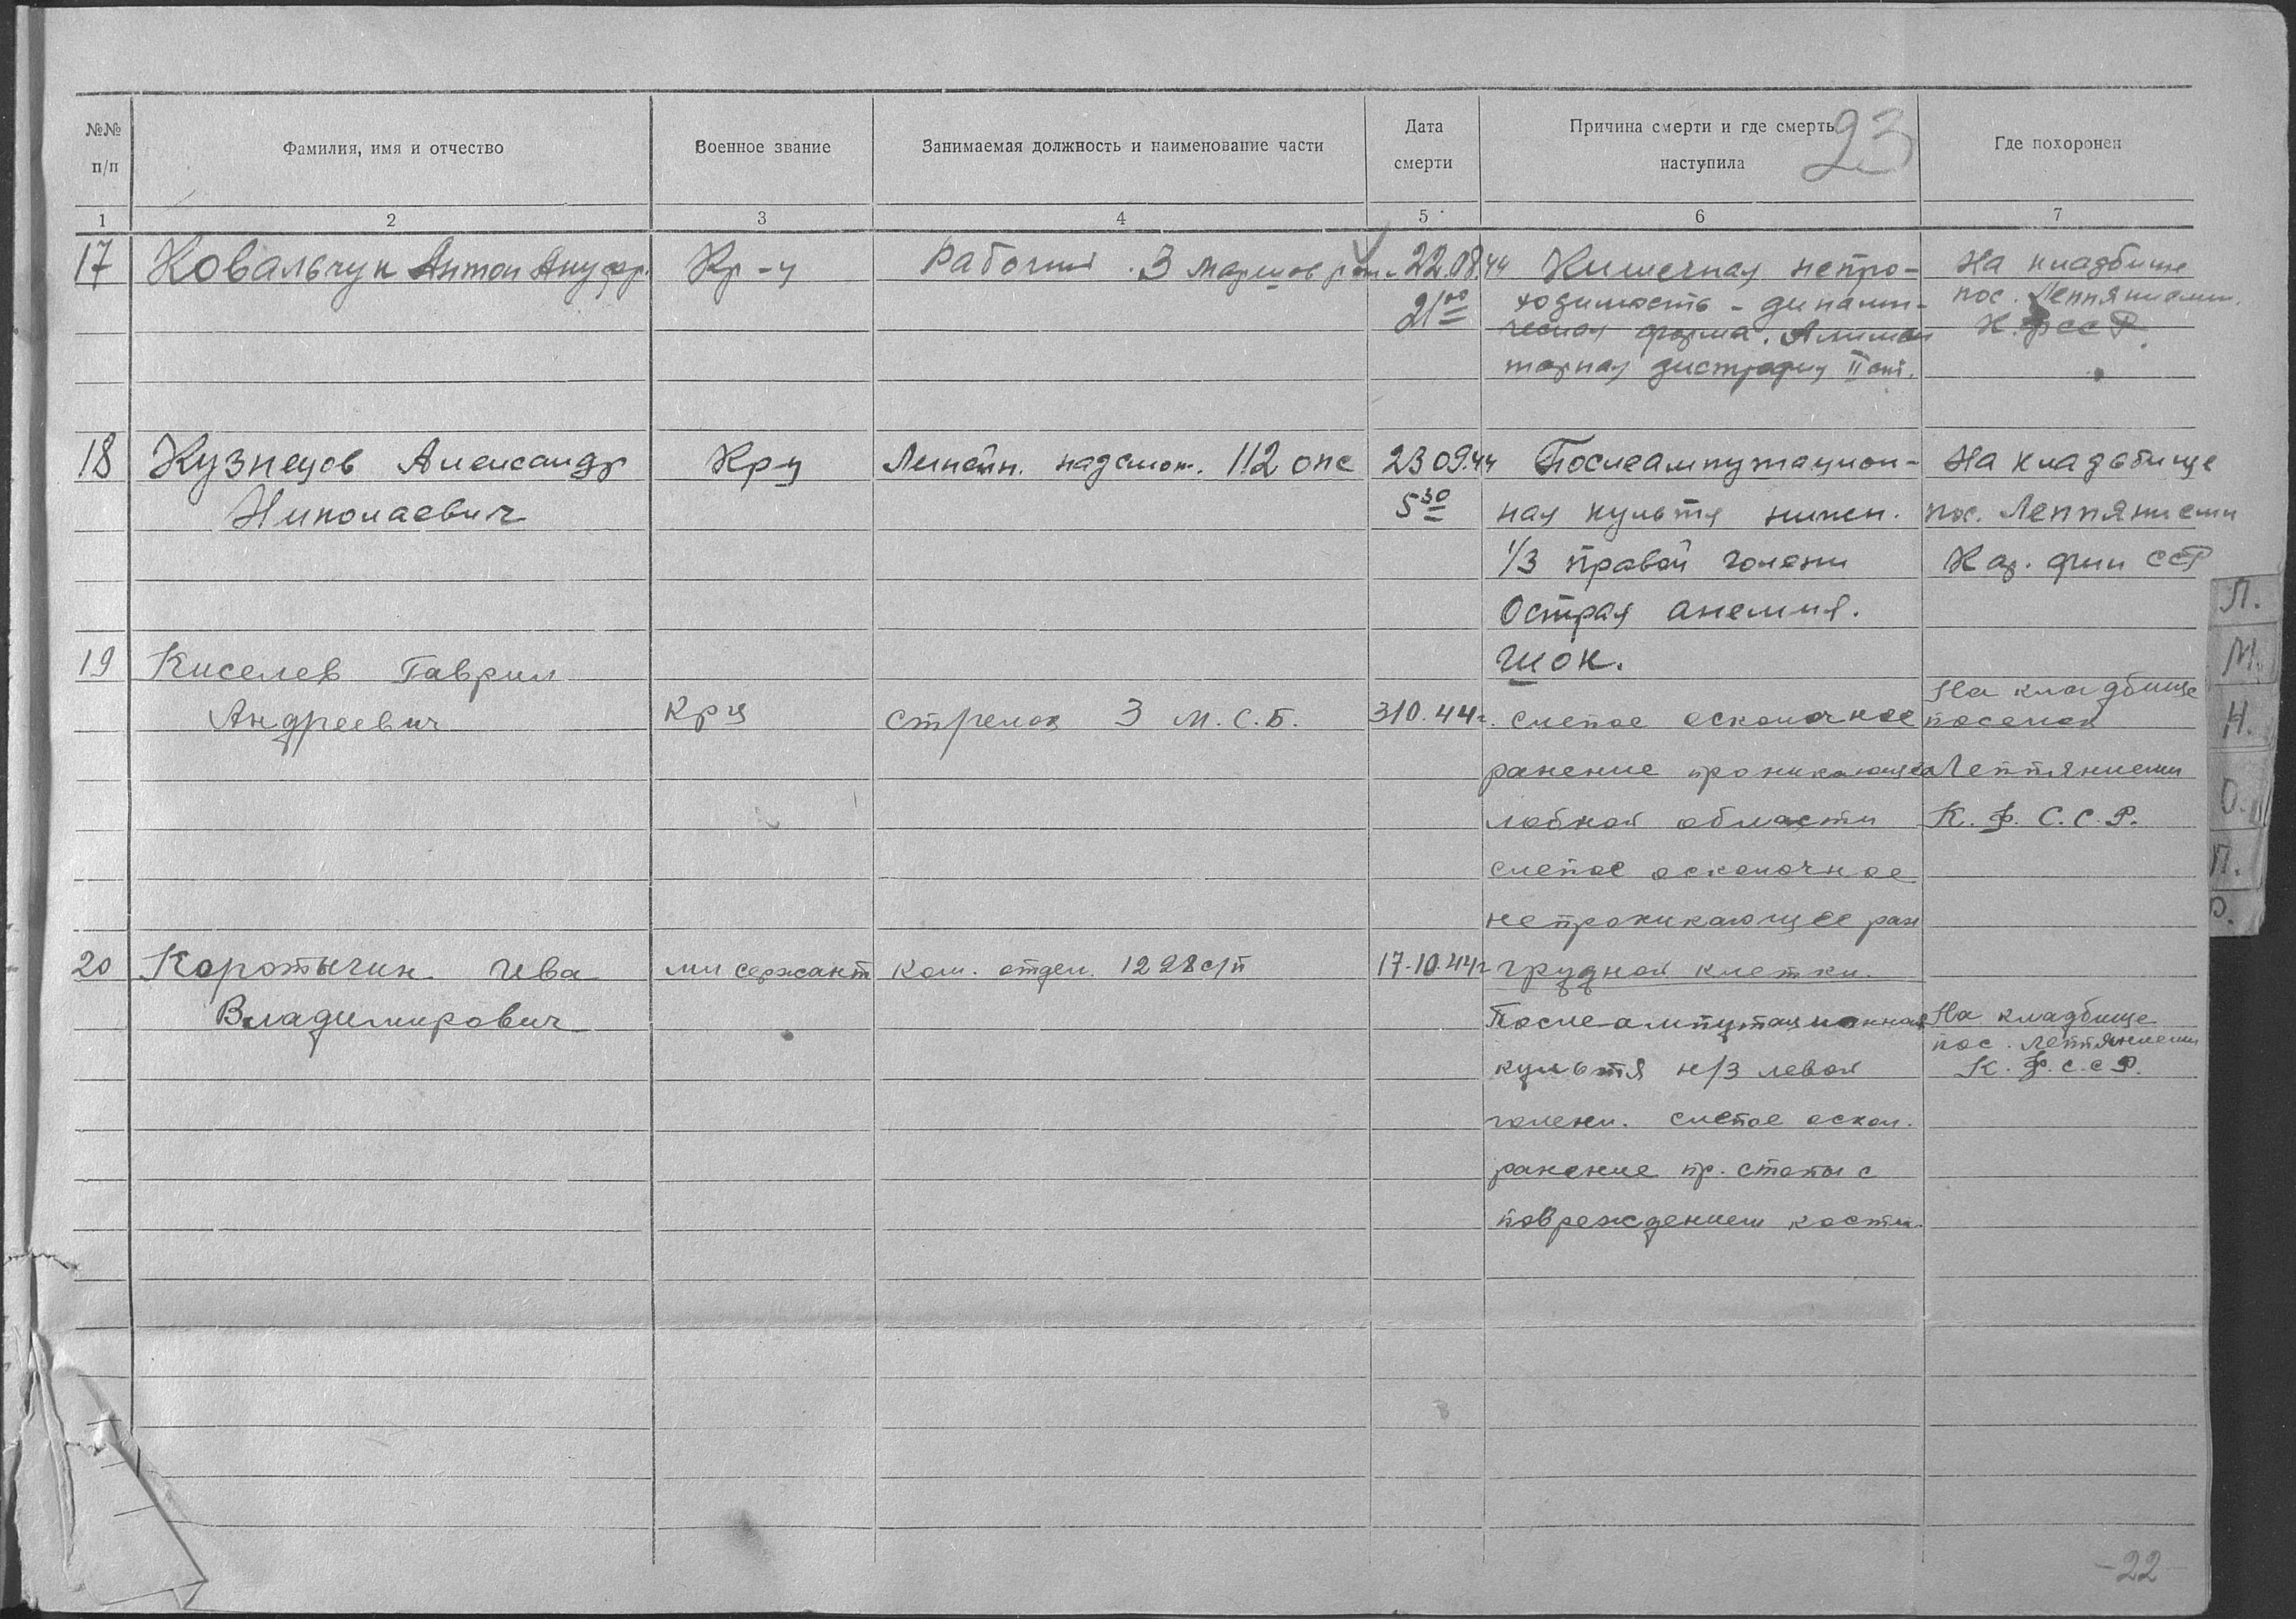 23
№№ п/п
Фамилия, имя и отчество
Военное звание
Занимаемая должность и наименование части
Дата смерти
Причина смерти и где смерть наступила
Где похоронен
1 2 3 4 5 6 7
17 Ковальчук Антон Ануфр. Кр-ц Рабочий 3 маршов рот. 22.08.44 Кишечная непро- На кладбище
21⁰⁰ ходимость - динами- пос. Леппяниеми
ческая форма. Алимен К.ФССР.
тарная дистрофия II ст.
18 Кузнецов Александр Кр-ц Линейн. надсмот. 112 опс 23 09.44 Послеампутацион- На кладбище
Николаевич 5³⁰ ная культя нижн. пос. Леппяниеми
1/3 правой голени Кар. фин ССР
Острая анемия.
19 Киселев Гаврил Шок.
Андреевич Кр ц стрелок 3 М.С.Б. 3 10.44 г. слепое осколочное На кладбище поселок
ранение проникающее Леппяниеми
лобной области К. Ф. С. С. Р.
слепое осколочное
непроникающее ран
20 Коротычин Ива мл сержант Ком. отдел. 1228 с/п 17.10.44 г грудной клетки.
Владимирович Послеампутационная На кладбище
пос. Леппяниеми
культя н/3 левой К. Ф. С. С Р.
голени. слепое оскол.
ранение пр. стопы с
повреждением кости.
Л.
М.
Н.
О.
П.
Р.
-22-